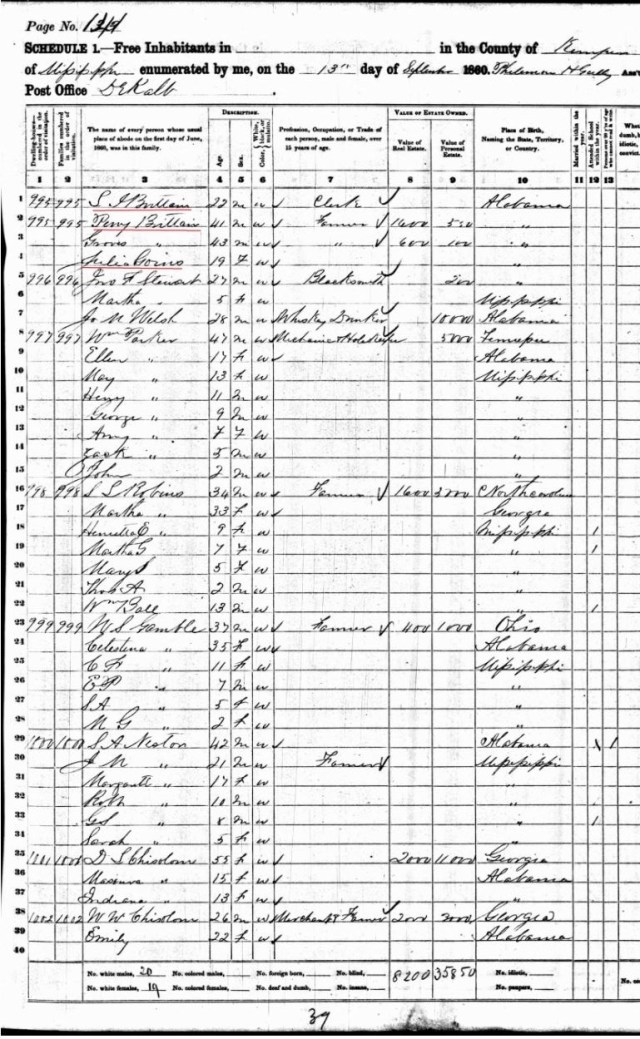 Page No. 134
SCHEDULE 1.—Free Inhabitants in in the County of Kemper
of Missippi enumerated by me, on the 13th day of September 1860. Philemon H Gully Ass't
Post Office DeKalb
DESCRIPTION. VALUE OF ESTATE OWNED.
Dwelling-houses—numbered in the order of visitation. Families numbered in the order of visitation. The name of every person whose usual place of abode on the first day of June, 1860, was in this family. Age. Sex. Color, White, black, or mulatto. Profession, Occupation, or Trade of each person, male and female, over 15 years of age. Value of Real Estate. Value of Personal Estate. Place of Birth, Naming the State, Territory, or Country. Married within the year. Attended School within the year.
1 2 3 4 5 6 7 8 9 10 11 12 13
1 995 995 S J Brittain 22 m w Clerk Alabama
2 995 995 Perry Brittain 41 m w Farmer 1600 "
3 " 43 m w " 600 100 "
4 Julia Goins 19 f w "
5 996 996 Jno F Stewart 27 m w Blacksmith 200 "
6 Martha " 5 f w Missippi
7 Jo N Welsh 28 m w Whiskey Drinker 10000 Alabama
8 997 997 Wm Parker 47 m w Mechanic & Hotel Keeper 5000 Tennessee
9 Ellen " 17 f w Alabama
10 May " 13 f w Missippi
11 Henry " 11 m w "
12 George " 9 m w "
13 Amy " 7 f w "
14 Zack " 5 m w "
15 John " 2 m w "
16 998 998 S S Robins 34 m w Farmer 1600 3000 N Carolina
17 Martha " 33 f w Georgia
18 Henrietta E " 9 f w Missippi 1
19 Martha G " 7 f w " 1
20 Mary S " 5 f w "
21 Thos A " 2 m w "
22 Wm Ball 13 m w " 1
23 999 999 W S Gamble 37 m w Farmer 400 1000 Ohio
24 Celestina " 35 f w Alabama
25 C F " 11 f w Missippi
26 E P " 7 m w "
27 S A " 5 f w "
28 M G " 2 f w "
29 1000 1000 S A Neston 42 m w Alabama 1
30 J N " 21 m w Farmer Missippi
31 Margarett " 17 f w "
32 Roth " 10 m w "
33 G S " 8 m w " 1
34 Sarah " 5 f w "
35 1001 1001 D S Chisolom 55 f w 2000 11000 Georgia
36 " 15 f w Alabama
37 Indiana " 13 f w "
38 1002 1002 W W Chisolom 26 m w Merchant & Farmer 2000 2000 Georgia
39 Emily 22 f w Alabama
40
No. white males, 20 No. colored males, No. foreign born, No. blind, 8200 35850 No. idiotic,
No. white females, 19 No. colored females, No. deaf and dumb, No. insane, No. paupers,
39